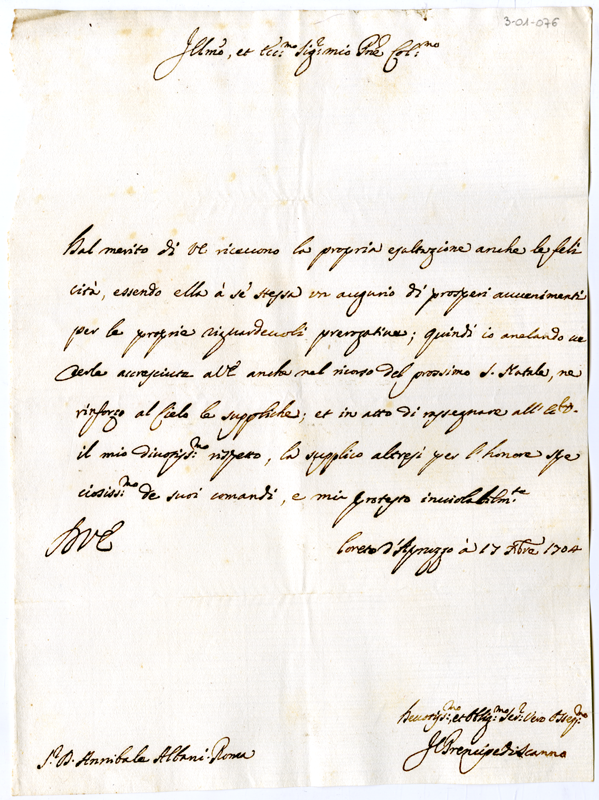 3-01-076
Illmo, et Ecc:mo Sig:r mio Prne Col:mo
Dal merito di VE riceuono la propria esaltazione anche le feli
cità, essendo ella à sè stessa un augurio di prosperi auuenimenti
per le proprie riguardeuoli prerogatiue; quindi io anelando ue
derle accresciute all'VE anche nel ricorso del prossimo S. Natale, ne
rinforzo al Cielo le suppliche; et in atto di rassegnare all'
il mio diuotiss:mo rispetto, la supplico altresì per l'honore spe
ciosiss:mo de suoi comandi, e mi protesto inuiolabilm:te
DVE
Loreto d'Apruzzo à 17 Xbre 1704
Deuotiss:mo, et Oblig:mo Ser:r Vero Osseq:mo
Il Prencipe di Scanno
S:r D. Annibale Albani. Roma